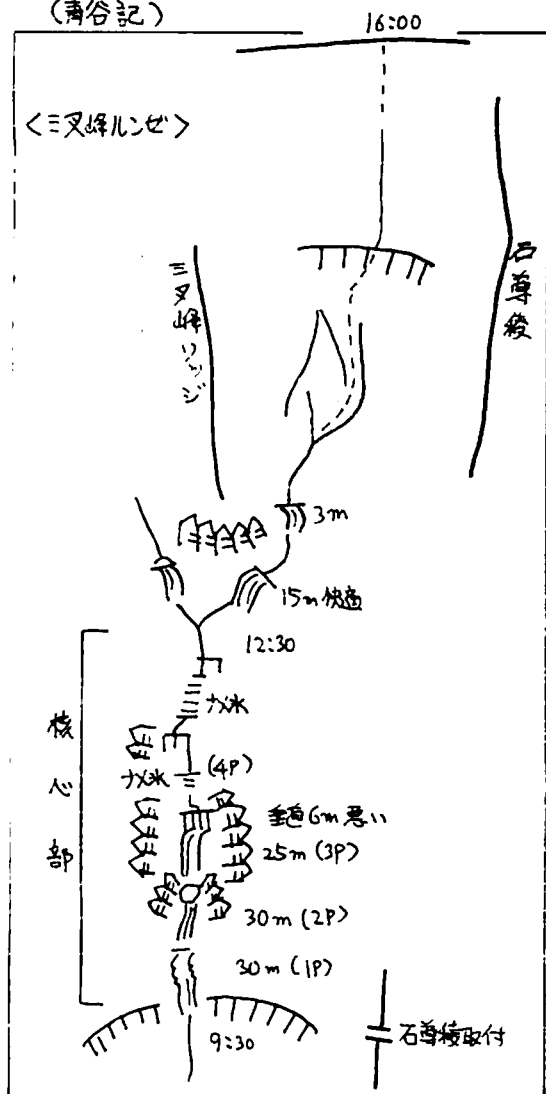 (青谷記)
16:00
<三叉峰ルンゼ>
石尊稜
三叉峰リッジ
3m
15m 快適
12:30
ナメ氷
核心部
ナメ氷
(4P)
垂直6m 悪い
25m (3P)
30m (2P)
30m (1P)
9:30
石尊稜取付